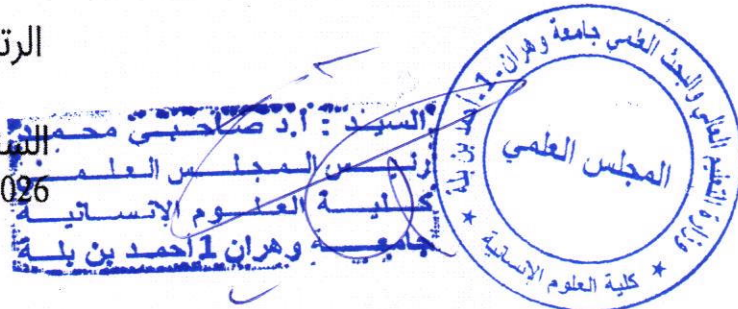 الرت
الس
026
السيد : أ.د صاحبي محمد
رئيس المجلس العلمي
كلية العلوم الإنسانية
جامعة وهران 1 أحمد بن بلة
وزارة التعليم العالي والبحث العلمي جامعة وهران -1- أحمد بن بلة
المجلس العلمي
★ كلية العلوم الإنسانية ★